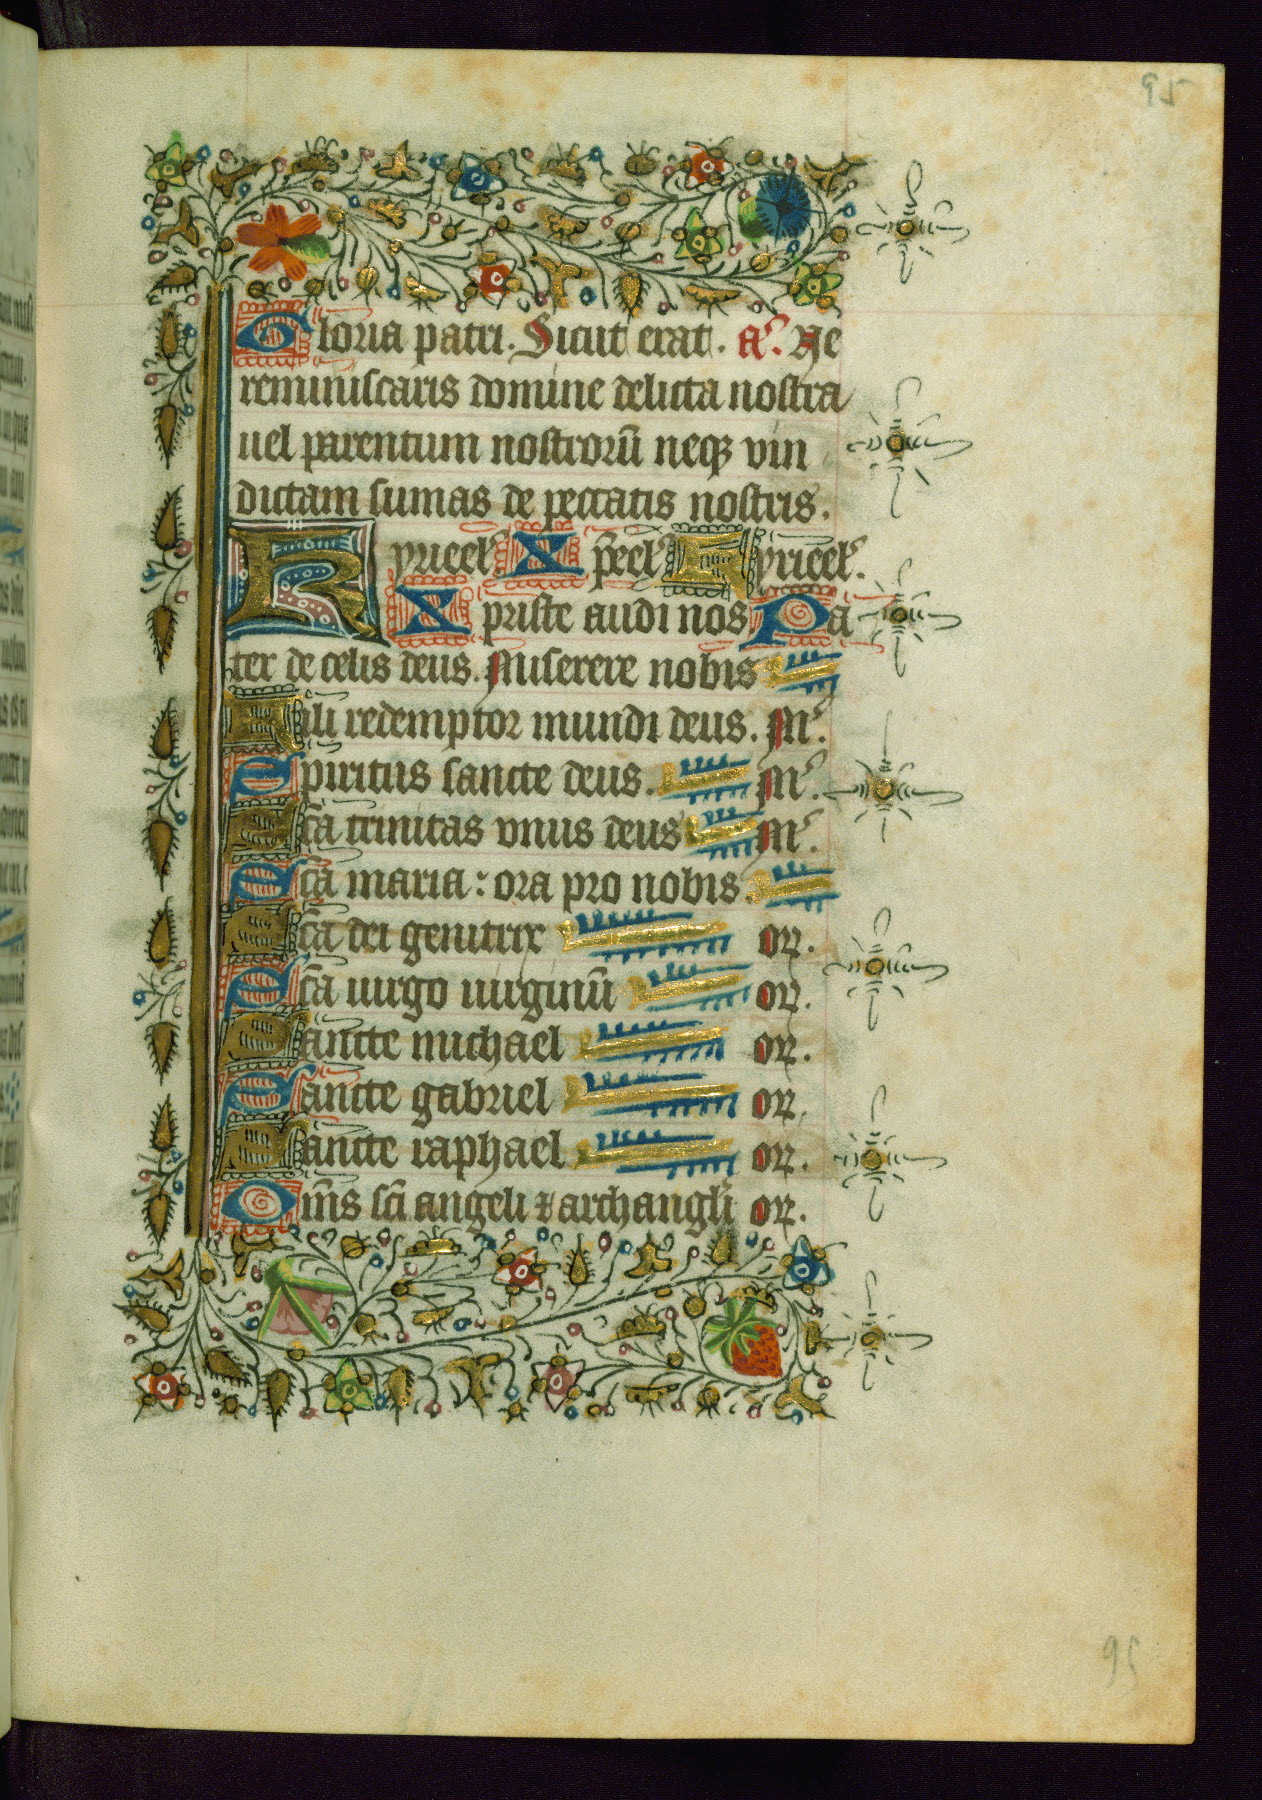 95
Gloria patri. Sicut erat. A͛. Ne
reminiscaris domine delicta nostra
uel parentum nostrorū neqꝫ vin
dictam sumas de peccatis nostris.
Kyrieel͛. Xp̄eel͛ Kyrieel͛.
Xpriste audi nos Pa
ter de celis deus. Miserere nobis
Fili redemptor mundi deus. M͛.
Spiritus sancte deus. M͛.
Sc̄a trinitas vnus deus M͛.
Sc̄a maria: ora pro nobis.
Sc̄a dei genitrix oꝝ.
Sc̄a uirgo uirginū oꝝ.
Sancte michael oꝝ.
Sancte gabriel oꝝ.
Sancte raphael oꝝ.
Om̄s sc̄i angeli ⁊ archangl̄i oꝝ.
95